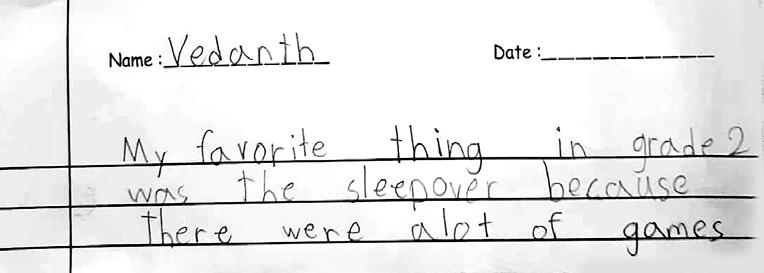 Name: Vedanth Date:
My favorite thing in grade 2
was the sleepover because
there were alot of games